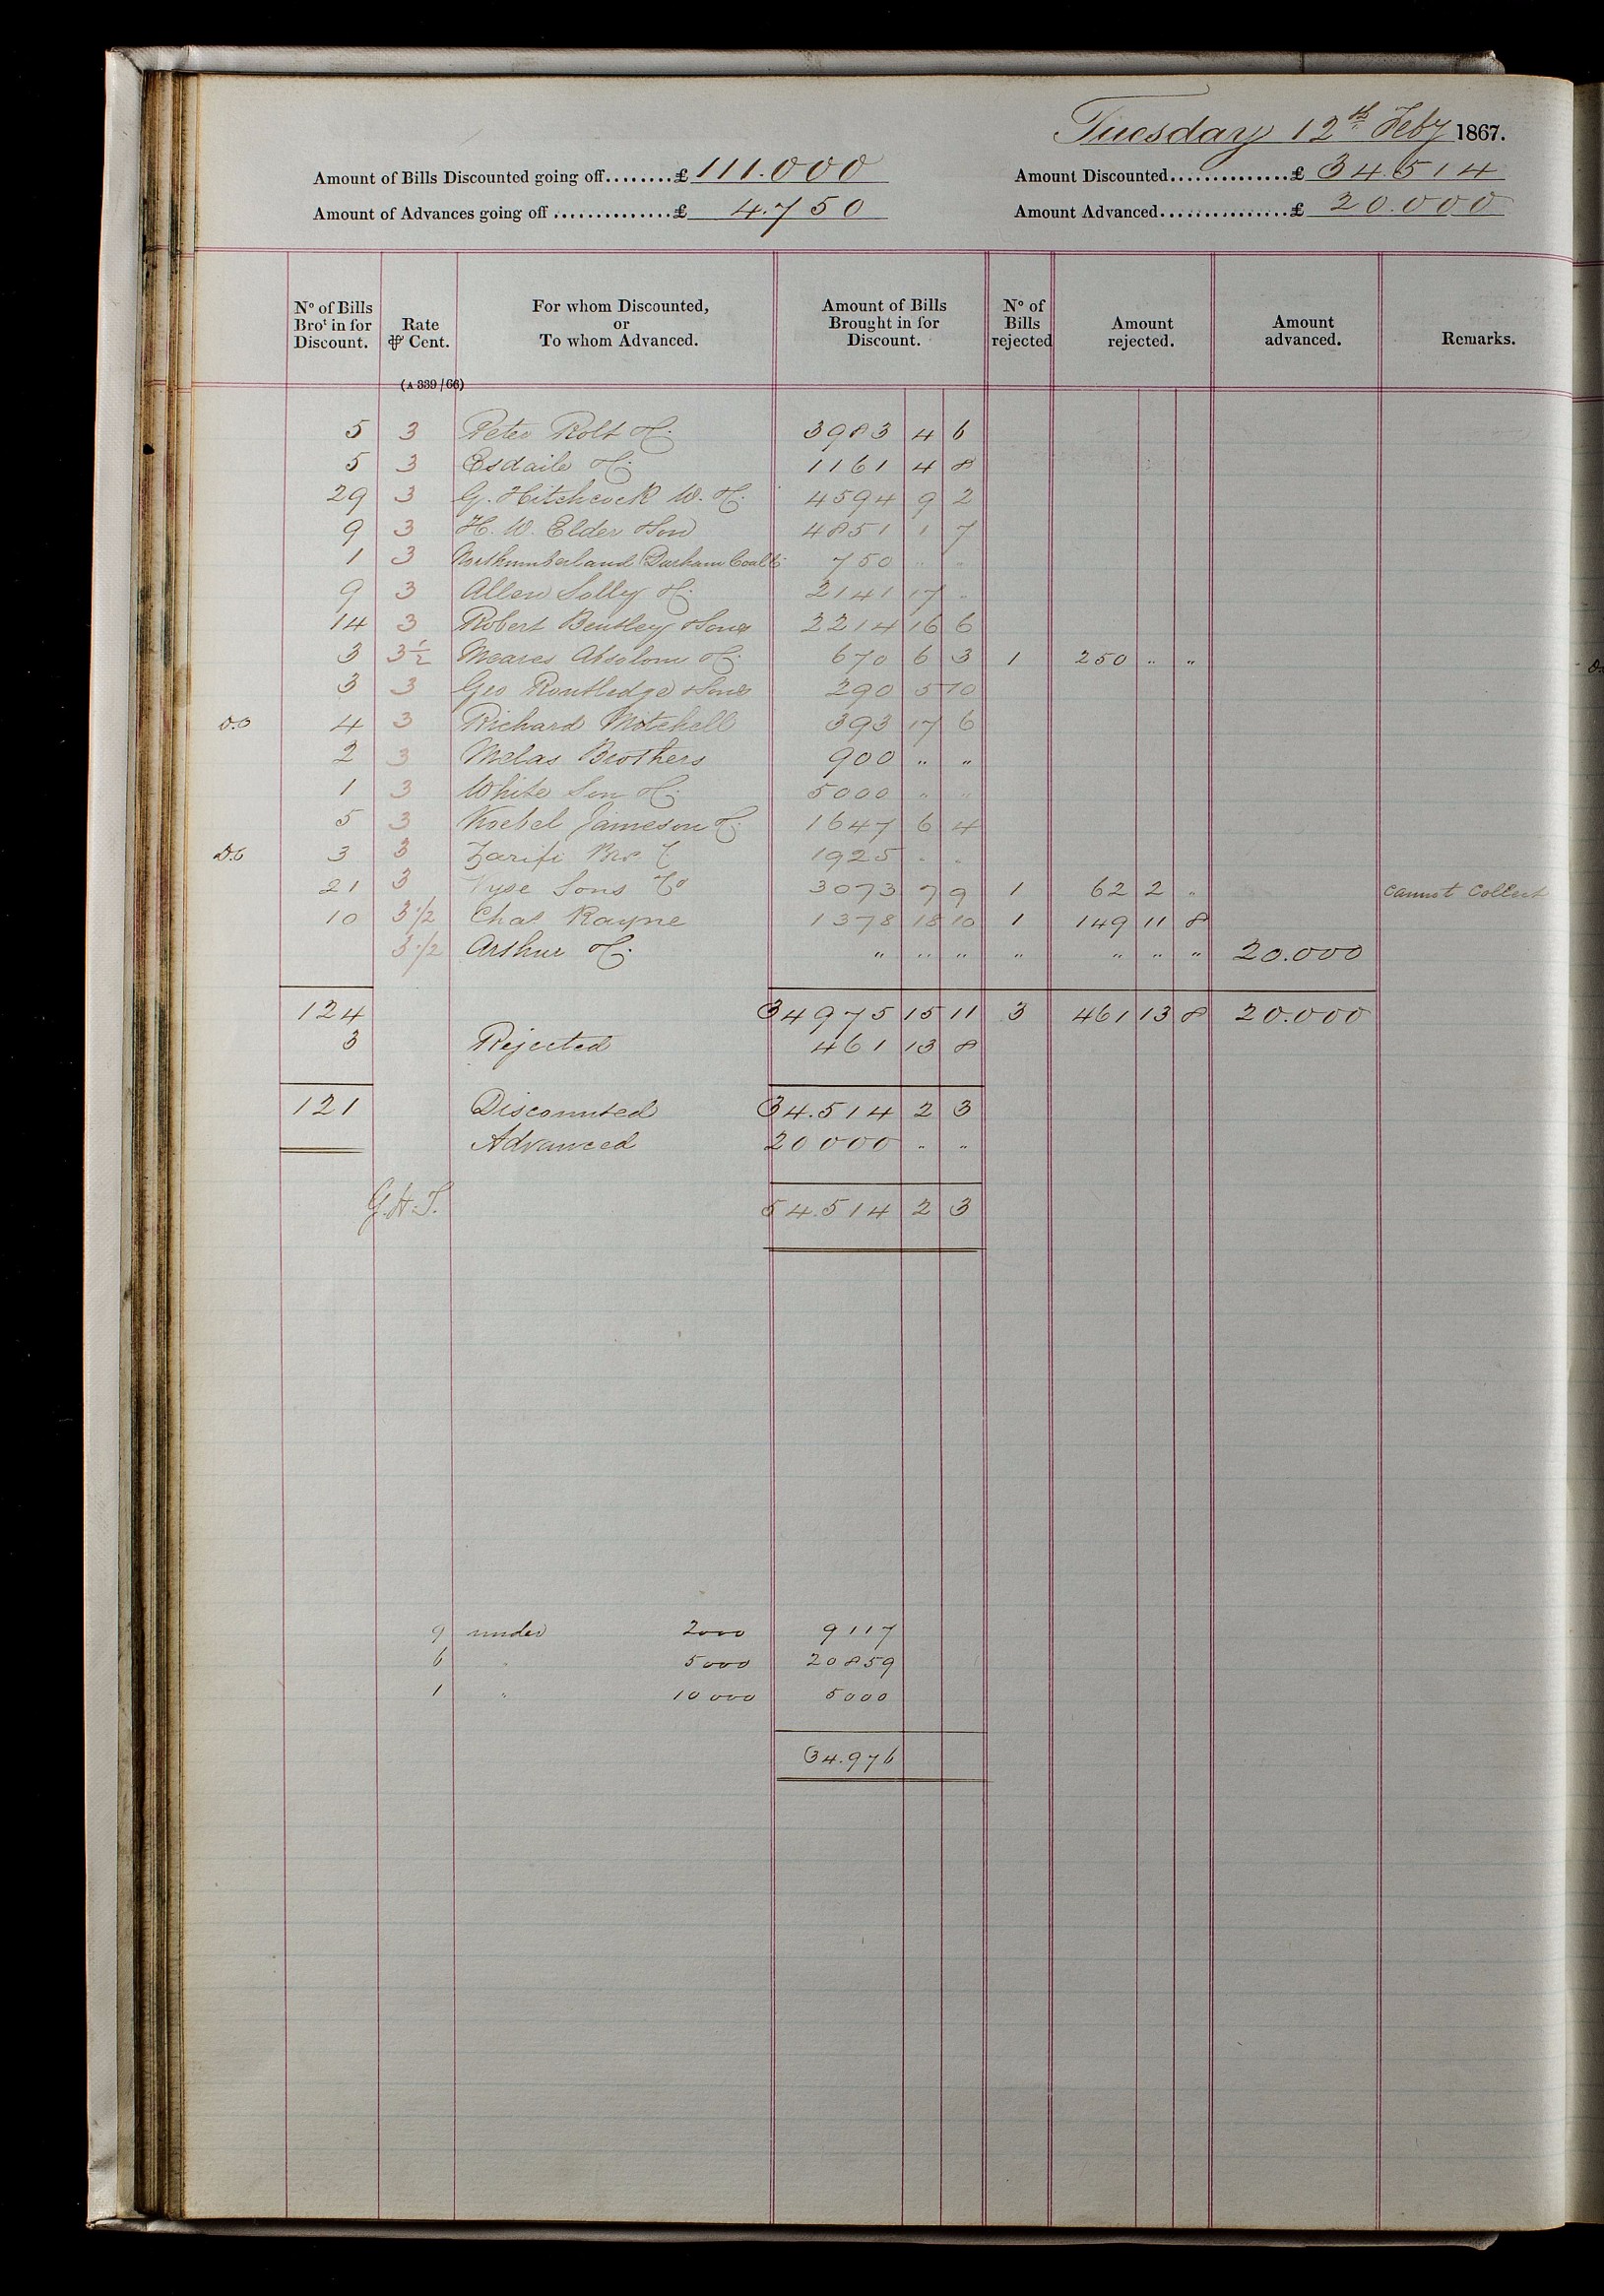 Tuesday 12th Feby 1867.
Amount of Bills Discounted going off........£ 111.000 Amount Discounted..............£ 34.514
Amount of Advances going off ..............£ 4.750 Amount Advanced................£ 20.000
No of Bills Brot in for Discount. Rate ⅌ Cent. For whom Discounted, or To whom Advanced. Amount of Bills Brought in for Discount. No of Bills rejected Amount rejected. Amount advanced. Remarks.
(A 339/66)
5 3 Peter Rolt & Co. 3983 4 6
5 3 Esdaile & Co. 1161 4 8
29 3 G. Hitchcock W. & Co. 4594 9 2
9 3 H. W. Elder & Son 4851 1 7
1 3 Northumberland & Durham Coal Co 750 " "
9 3 Allen Solly & Co. 2141 17 "
14 3 Robert Bentley & Sons 2214 16 6
3 3½ Meares Absolom & Co. 670 6 3 1 250 " "
3 3 Geo Routledge & Sons 290 5 10
D.O 4 3 Richard Mitchell 393 17 6
2 3 Melas Brothers 900 " "
1 3 White Son & Co. 5000 " "
5 3 Koebel Jameson & Co. 1647 6 4
D.O 3 3 Zarifi Bro C 1925 " "
21 3 Vyse Sons Co 3073 7 9 1 62 2 " Cannot Collect
10 3 1/2 Chas Rayne 1378 18 10 1 149 11 8
3 1/2 Arthur & Co. " " " " " " " 20.000
124 34975 15 11 3 461 13 8 20.000
3 Rejected 461 13 8
121 Discounted 34.514 2 3
Advanced 20000 " "
G.H.T. 54.514 2 3
9 under 2000 9117
6 " 5000 20859
1 " 10000 5000
34.976